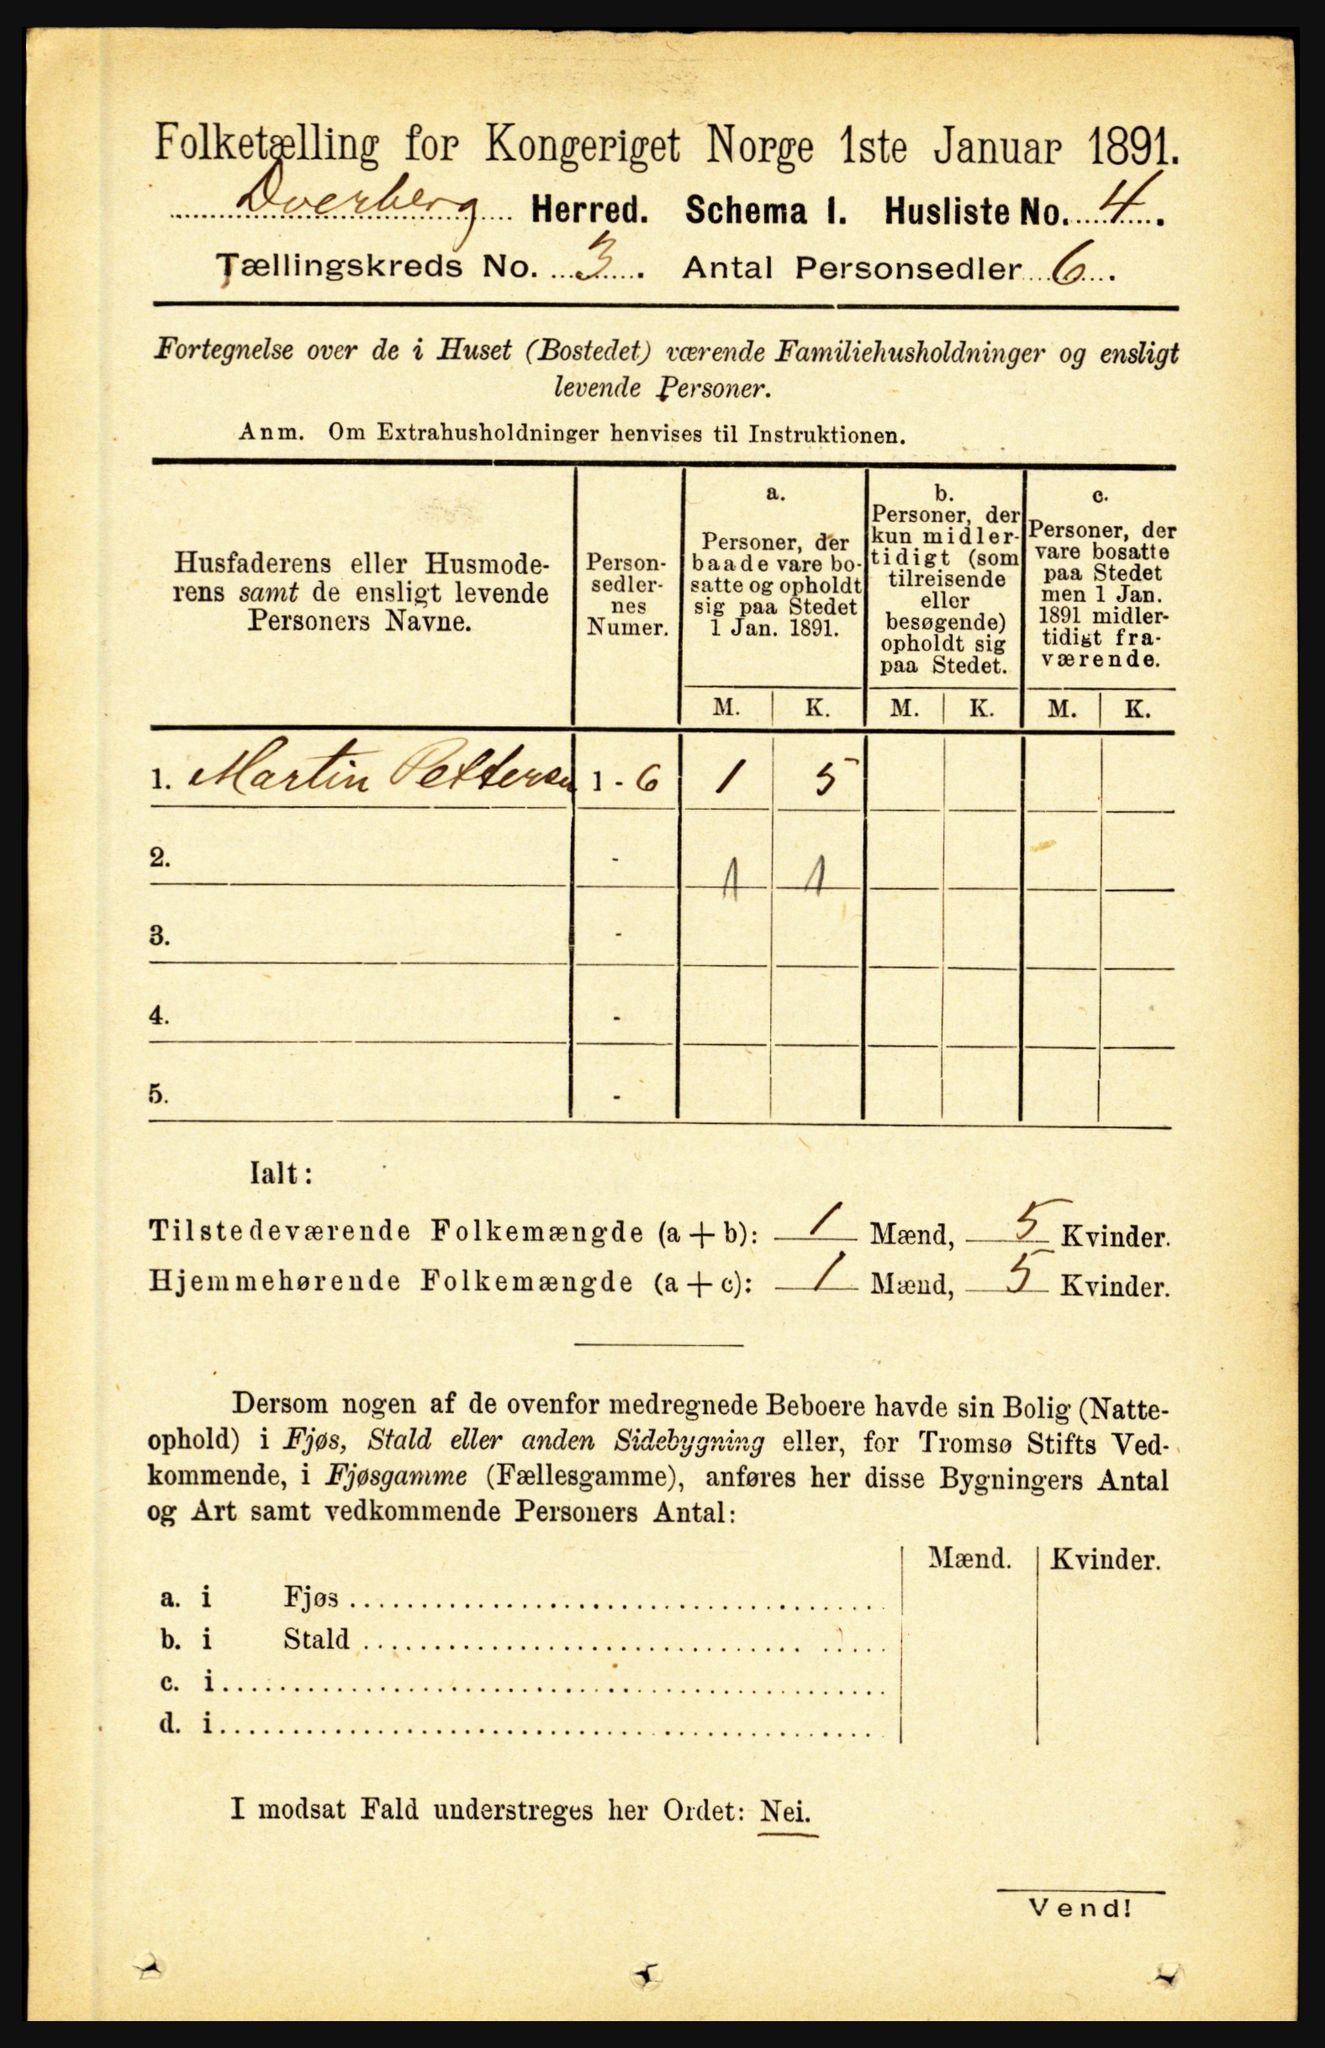 Folketælling for Kongeriget Norge 1ste Januar 1891.
Dverberg Herred. Schema I. Husliste No. 4.
Tællingskreds No. 3. Antal Personsedler 6.
Fortegnelse over de i Huset (Bostedet) værende Familiehusholdninger og ensligt
levende Personer.
Anm. Om Extrahusholdninger henvises til Instruktionen.
Husfaderens eller Husmode-
rens samt de ensligt levende
Personers Navne.
Person-
sedler-
nes
Numer.
a.
Personer, der
baade vare bo-
satte og opholdt
sig paa Stedet
1 Jan. 1891.
b.
Personer, der
kun midler-
tidigt (som
tilreisende
eller
besøgende)
opholdt sig
paa Stedet.
c.
Personer, der
vare bosatte
paa Stedet
men 1 Jan.
1891 midler-
tidigt fra-
værende.
M. K. M. K. M. K.
1. Martin Pettersen 1 - 6 1 5
2. - 1 1
3. -
4. -
5. -
Ialt:
Tilstedeværende Folkemængde (a + b): 1 Mænd, 5 Kvinder.
Hjemmehørende Folkemængde (a + c): 1 Mænd, 5 Kvinder.
Dersom nogen af de ovenfor medregnede Beboere havde sin Bolig (Natte-
ophold) i Fjøs, Stald eller anden Sidebygning eller, for Tromsø Stifts Ved-
kommende, i Fjøsgamme (Fællesgamme), anføres her disse Bygningers Antal
og Art samt vedkommende Personers Antal:
Mænd. Kvinder.
a. i Fjøs
b. i Stald
c. i
d. i
I modsat Fald understreges her Ordet: Nei.
Vend!